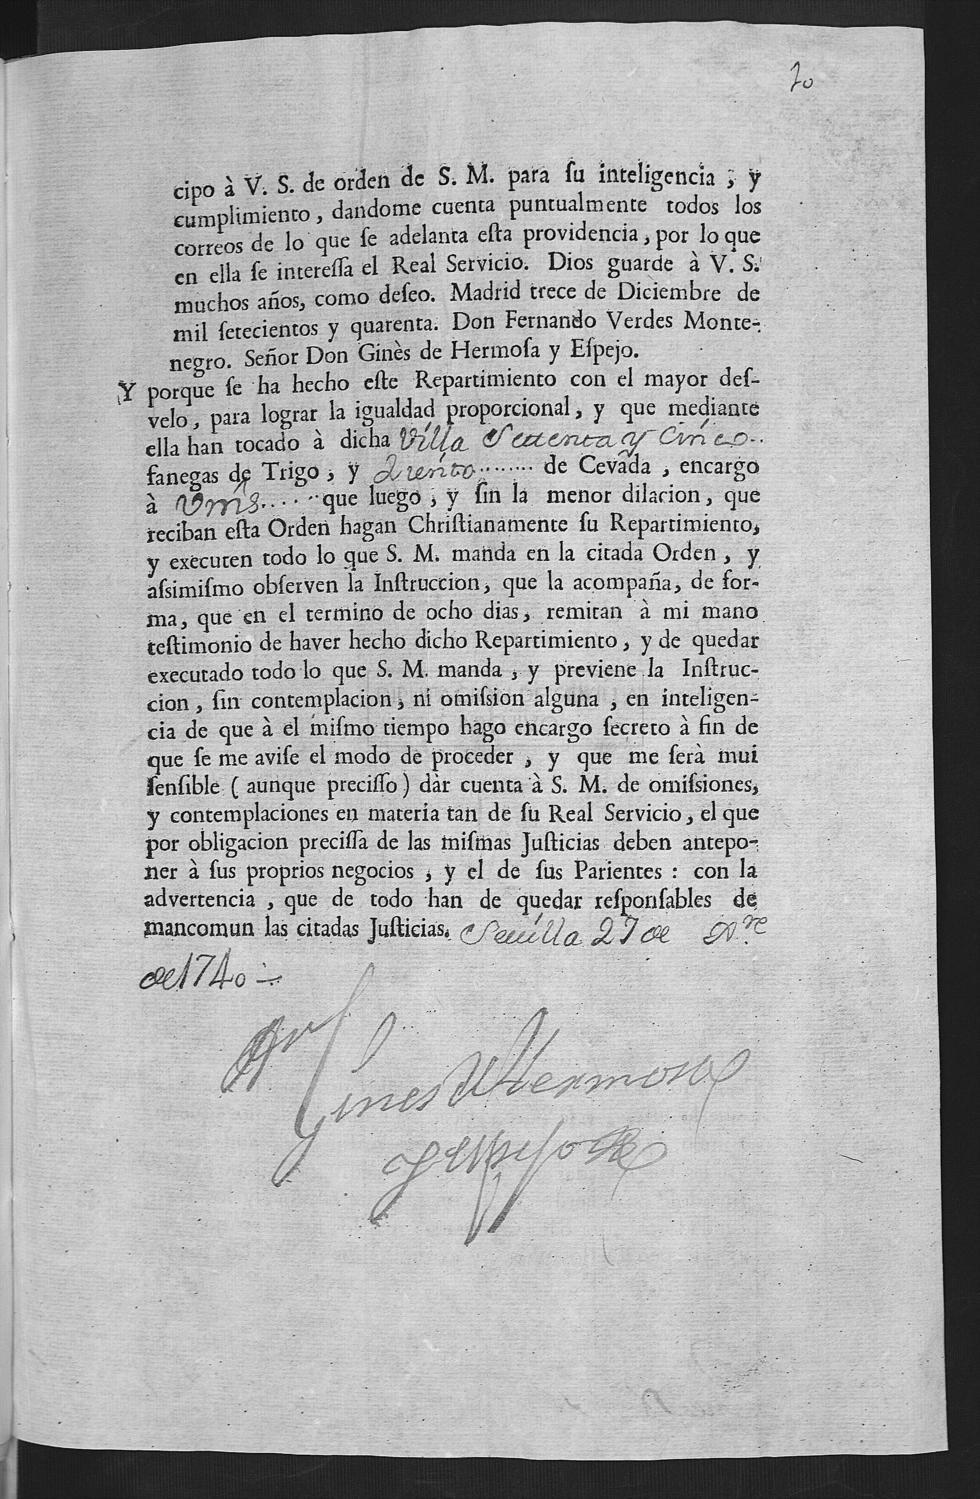 20
cipo à V. S. de orden de S. M. para ſu inteligencia ; y
cumplimiento, dandome cuenta puntualmente todos los
correos de lo que ſe adelanta eſta providencia, por lo que
en ella ſe intereſſa el Real Servicio. Dios guarde à V. S.
muchos años, como deſeo. Madrid trece de Diciembre de
mil ſetecientos y quarenta. Don Fernando Verdes Monte-
negro. Señor Don Ginès de Hermoſa y Eſpejo.
Y porque ſe ha hecho eſte Repartimiento con el mayor deſ-
velo, para lograr la igualdad proporcional, y que mediante
ella han tocado à dicha Villa Settenta y Cinco..
fanegas de Trigo, y Duento....... de Cevada, encargo
à Vms..... que luego, y ſin la menor dilacion, que
reciban eſta Orden hagan Chriſtianamente ſu Repartimiento,
y executen todo lo que S. M. manda en la citada Orden, y
aſsimiſmo obſerven la Inſtruccion, que la acompaña, de for-
ma, que en el termino de ocho dias, remitan à mi mano
teſtimonio de haver hecho dicho Repartimiento, y de quedar
executado todo lo que S. M. manda, y previene la Inſtruc-
cion, ſin contemplacion, ni omiſsion alguna, en inteligen-
cia de que à el miſmo tiempo hago encargo ſecreto à fin de
que ſe me aviſe el modo de proceder, y que me ſerà mui
ſenſible ( aunque preciſſo ) dàr cuenta à S. M. de omiſsiones,
y contemplaciones en materia tan de ſu Real Servicio, el que
por obligacion preciſſa de las miſmas Juſticias deben antepo-
ner à ſus proprios negocios, y el de ſus Parientes : con la
advertencia, que de todo han de quedar reſponſables de
mancomun las citadas Juſticias. Sevilla 27 de Dre
de 1740
Dn Gines de Hermosa
y espejo